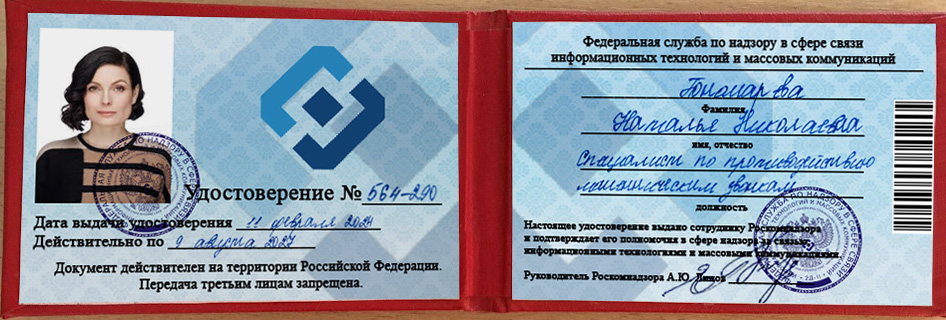 Удостоверение № 564-290
Дата выдачи удостоверения 11 февраля 2024
Действительно по 9 августа 2027
Документ действителен на территории Российской Федерации.
Передача третьим лицам запрещена.
Федеральная служба по надзору в сфере связи
информационных технологий и массовых коммуникаций
Пономарева
Фамилия
Наталья Николаевна
имя, отчество
Специалист по противодействию
мошенническим звонкам
должность
Настоящее удостоверение выдано сотруднику Роскомнадзора
и подтверждает его полномочия в сфере надзора за связью,
информационными технологиями и массовыми коммуникациями
Руководитель Роскомнадзора А.Ю. Липов